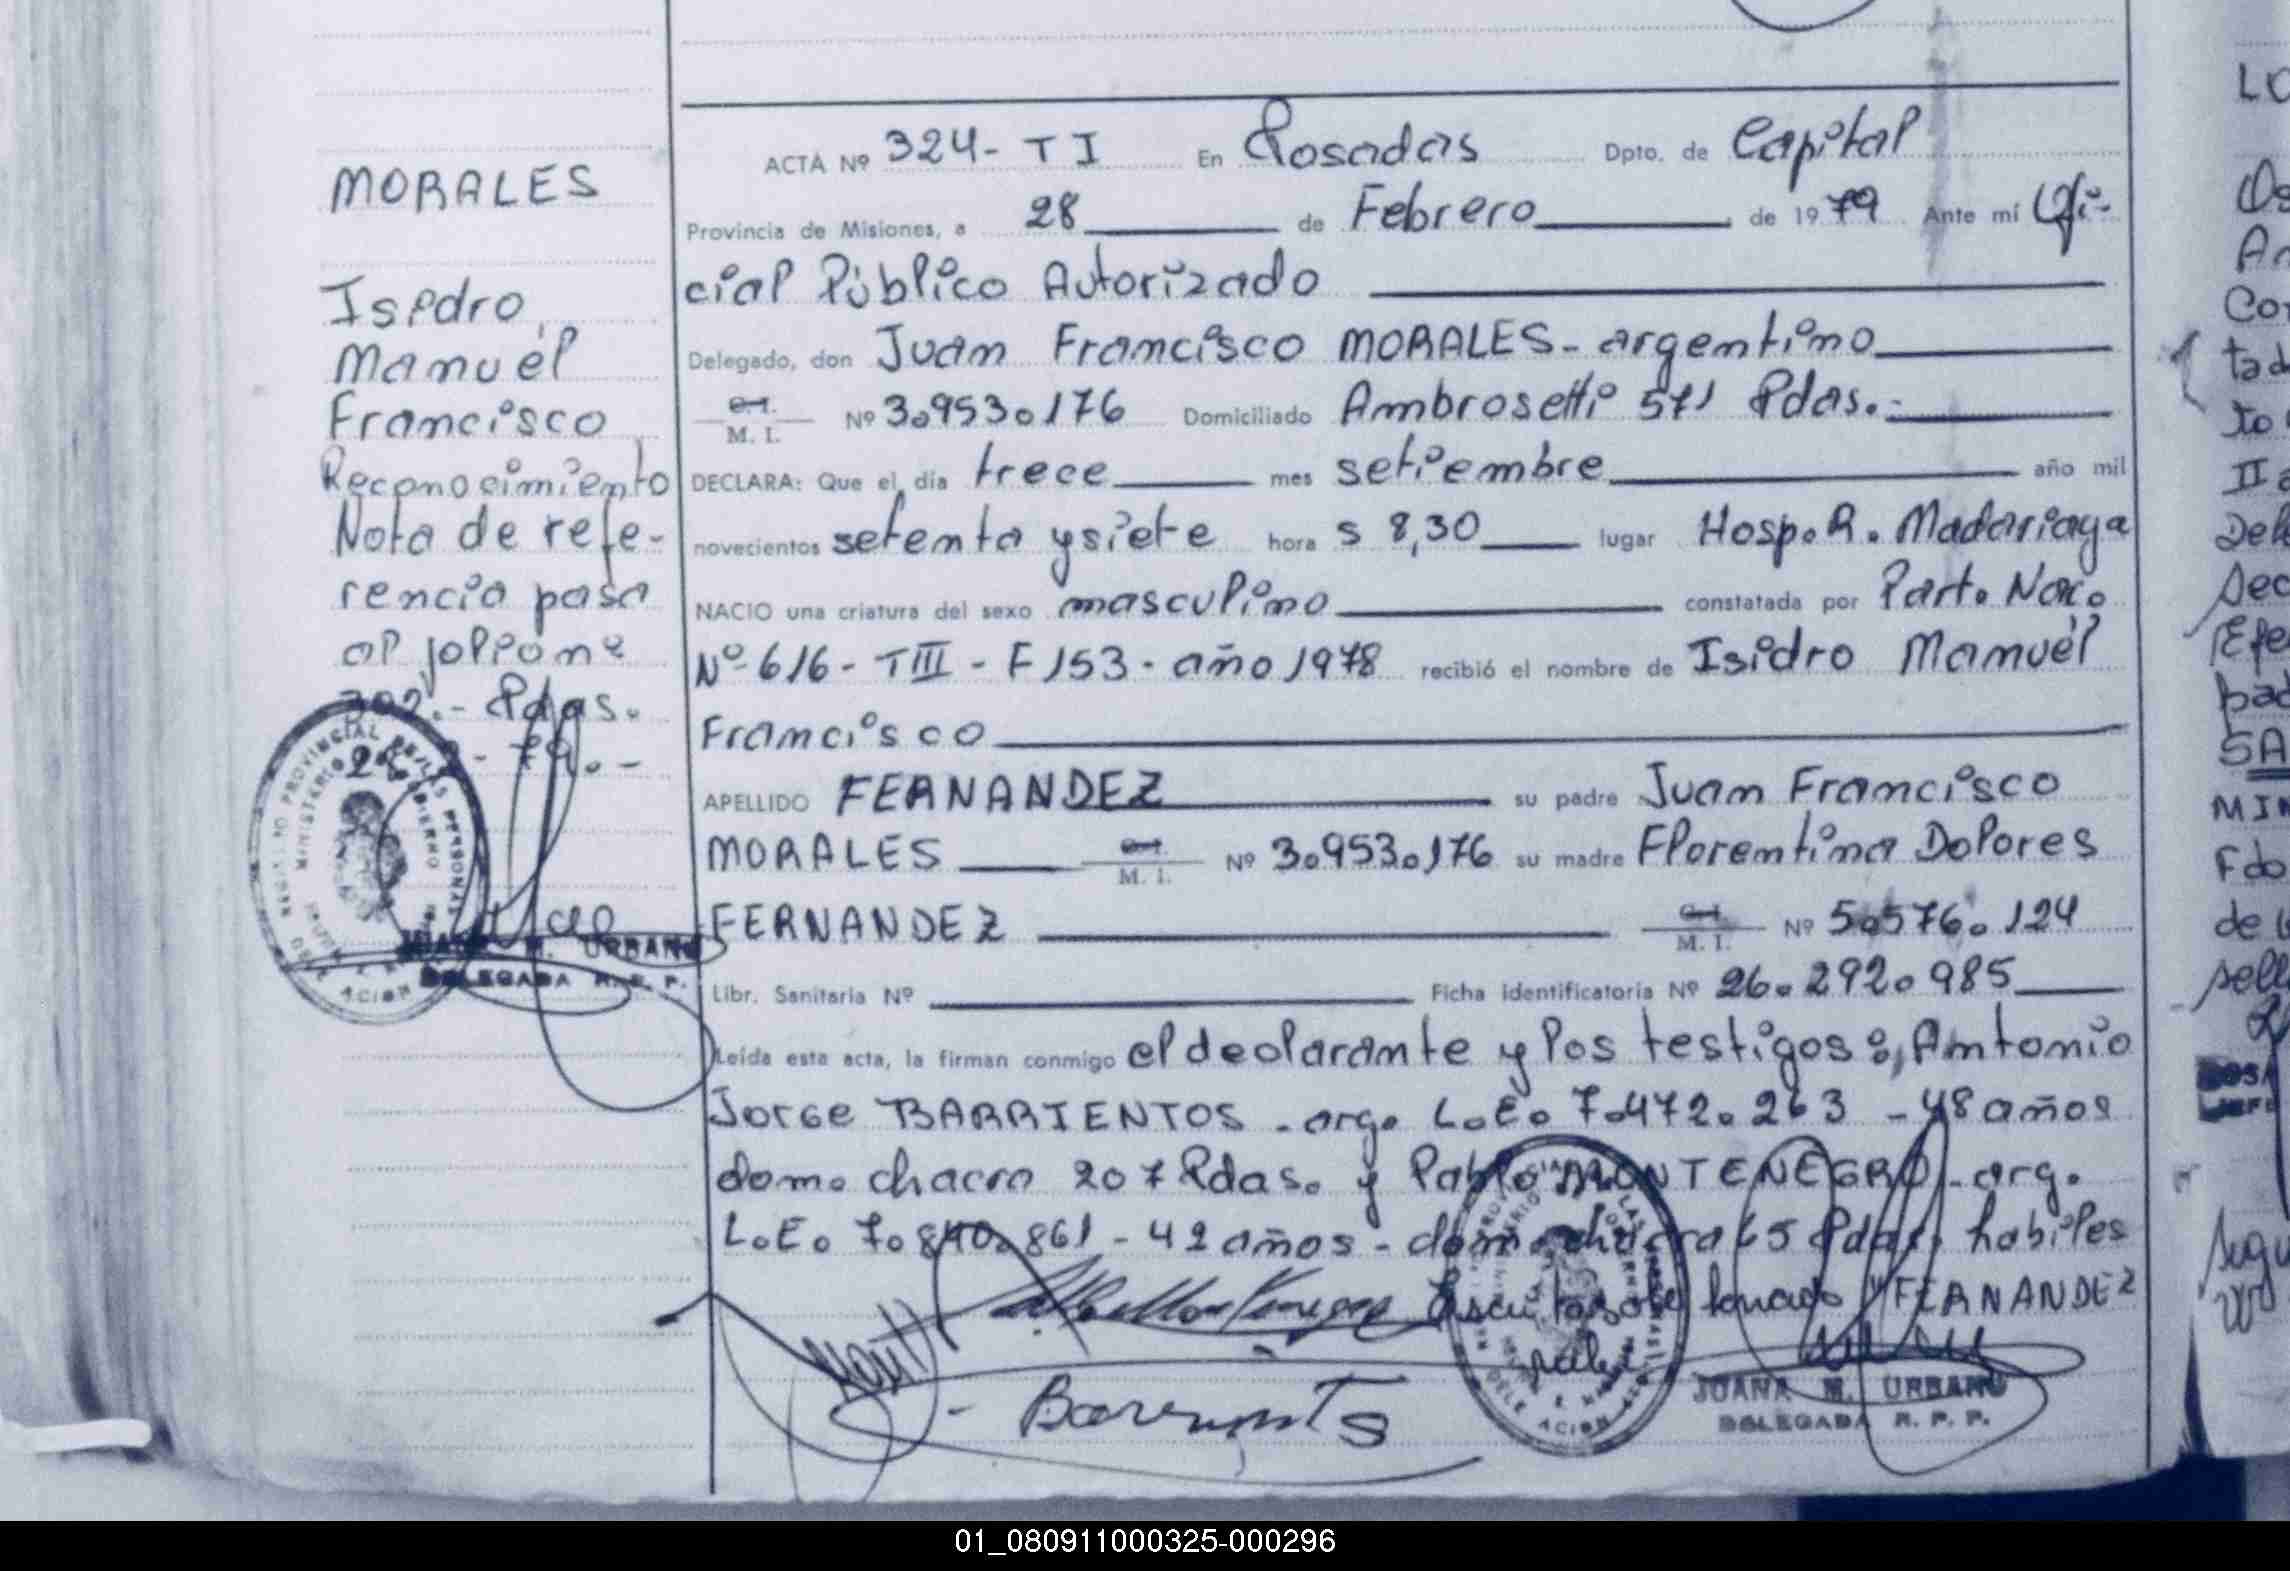 MORALES
Isidro
Manuel
Francisco
Reconocimiento
Nota de refe-
rencia pasa
al folio nº
302.- Pdas.
JUANA M. URBANO
DELEGADA R. P. P.
ACTA Nº 324- T I En Posadas Dpto. de Capital
Provincia de Misiones, a 28 de Febrero de 1979 Ante mí Ofi-
cial Público Autorizado
Delegado, don Juan Francisco MORALES- argentino
C.I. M. I. Nº 3.953.176 Domiciliado Ambrosetti 571 Pdas.-
DECLARA: Que el día trece mes setiembre año mil
novecientos setenta y siete hora s 8,30 lugar Hosp. R. Madariaga
NACIO una criatura del sexo masculino constatada por Part. Nac.
Nº 616- TIII - F 153 - año 1978 recibió el nombre de Isidro Manuel
Francisco
APELLIDO FERNANDEZ su padre Juan Francisco
MORALES C.I. M. I. Nº 3.953.176 su madre Florentina Dolores
FERNANDEZ C.I. M. I. Nº 5.576.124
Libr. Sanitaria Nº Ficha identificatoria Nº 26.292.985
Leída esta acta, la firman conmigo el declarante y los testigos: Antonio
Jorge BARRIENTOS - arg. L.E. 7.472.263 - 48 años
dom. chacra 207 Pdas. y Pablo MONTENEGRO - arg.
L.E. 7.840.861 - 42 años - dom. chacra 65 Pdas. habiles
"FERNANDEZ
vale
Barrientos
JUANA M. URBANO
DELEGADA R. P. P.
01_080911000325-000296